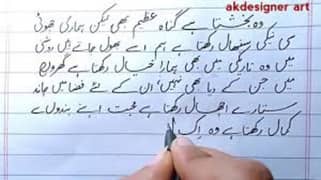 akdesigner art
وہ بخشتا ہے گناہ عظیم بھی لیکن ہماری چھوٹی
سی نیکی سنبھال رکھتا ہے ہم اسے بھول جاتے ہیں روشنی
میں وہ تاریکی میں بھی ہمارا خیال رکھتا ہے گھروں
میں جن کے دیا بھی نہیں ان کے لئے فضا میں چاند
ستارے اچھال رکھتا ہے محبت اپنے بندوں سے
کمال رکھتا ہے وہ اِک